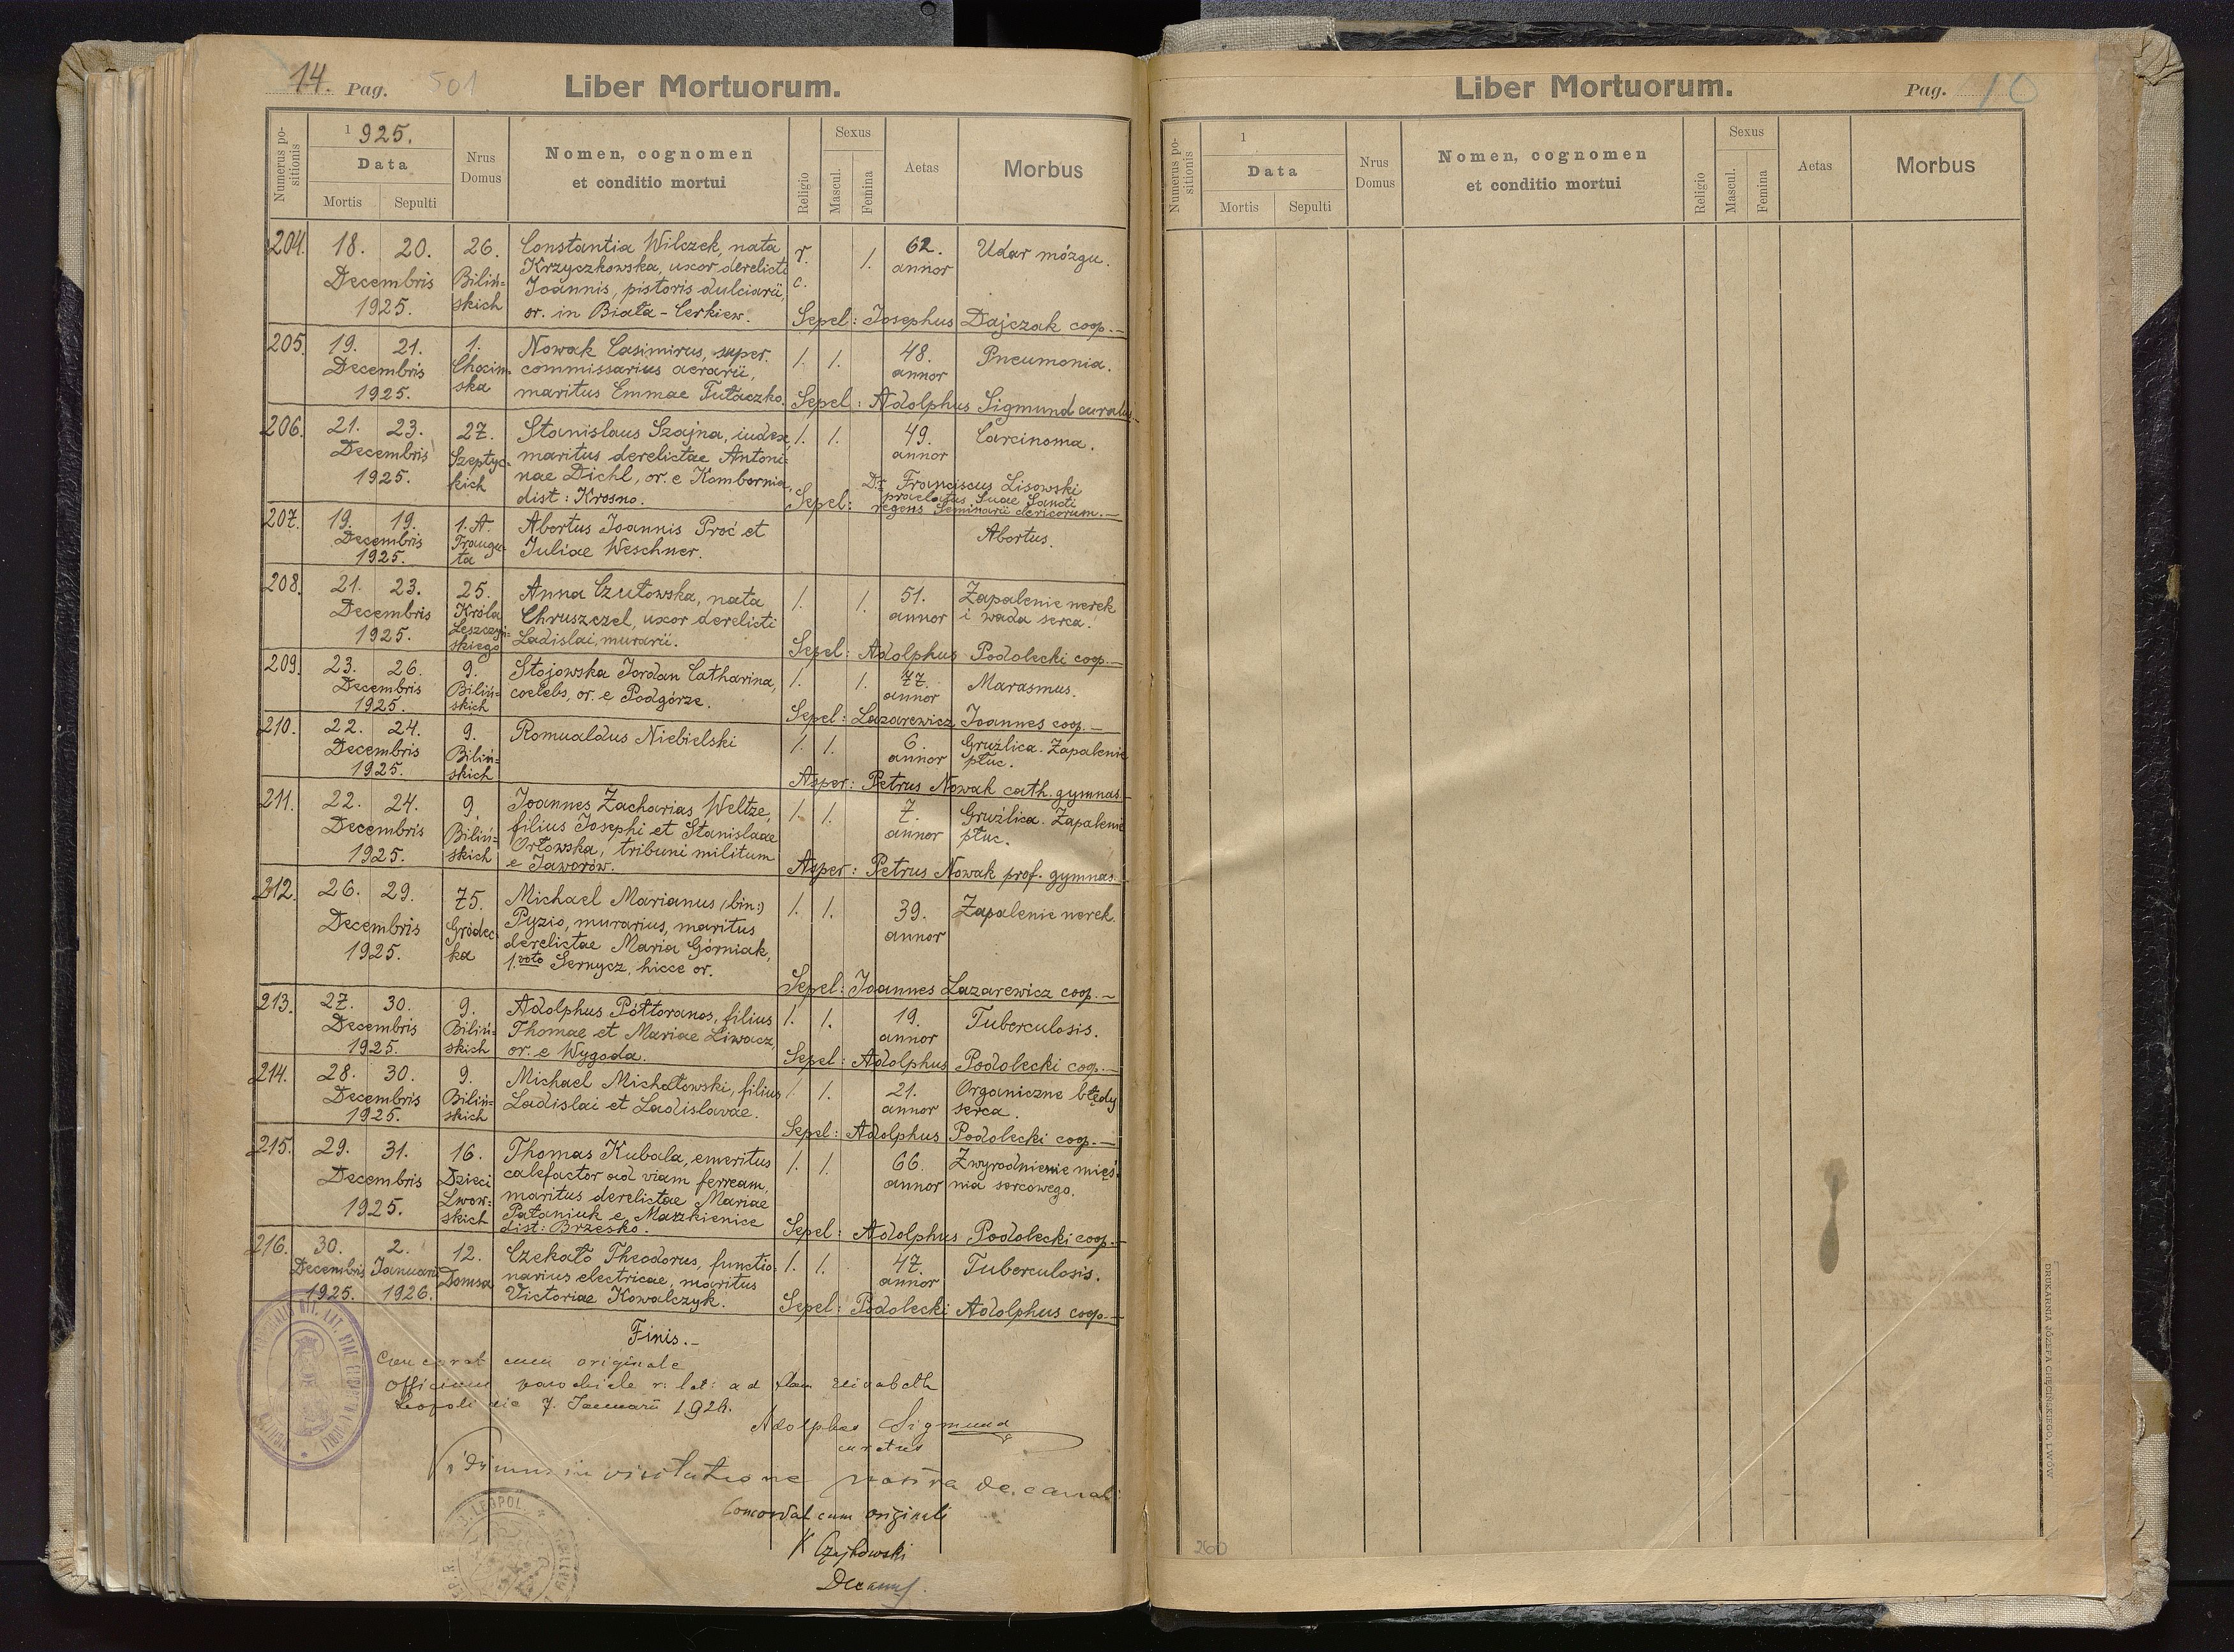 14. Pag. 501
Liber Mortuorum.
Numerus positionis
1925.
Data
Mortis
Sepulti
Nrus Domus
Nomen, cognomen
et conditio mortui
Religio
Sexus
Mascul.
Femina
Aetas
Morbus
204. 18. 20. 26. Constantia Wilczek, nata r. 1. 62. Udar mózgu.
Krzyczkowska, uxor derelicti annor
Decembris Biliń- Joannis, pistoris dulciarii, c.
1925. skich or. in Biała-Cerkiew. Sepel: Josephus Dajczak coop.—
205. 19. 21. 1. Nowak Casimirus, super. 1. 1. 48. Pneumonia.
Decembris Chocim- commissarius aerarii, annor
1925. ska maritus Emmae Tutaczko. Sepel: Adolphus Sigmund curatus
206. 21. 23. 27. Stanislaus Szajna, iudex, 1. 1. 49. Carcinoma.
Decembris Szeptyc- maritus derelictae Antoni- annor
1925. kich nae Dichl, or. e Kombornia, Dr Franciscus Lisowski
dist: Krosno. Sepel: praelatus Suae Sancti
regens Seminarii clericorum.—
207. 19. 19. 1. A. Abortus Joannis Proć et Abortus.
Decembris Traugu- Juliae Weschner.
1925. ta
208. 21. 23. 25. Anna Czułowska, nata 1. 1. 51. Zapalenie nerek
Decembris Króla Chruszczel, uxor derelicti annor i wada serca.
1925. Leszczyń- Ladislai, murarii.
skiego Sepel: Adolphus Podolecki coop.—
209. 23. 26. 9. Stojowska Jordan Catharina, 1. 1. 77. Marasmus.
Decembris Biliń- coelebs, or. e Podgórze. annor
1925. skich Sepel: Lazarewicz Joannes coop.—
210. 22. 24. 9. Romualdus Niebielski 1. 1. 6. Gruźlica. Zapalenie
Decembris Biliń- annor płuc.
1925. skich Asper: Petrus Nowak cath. gymnas.—
211. 22. 24. 9. Joannes Zacharias Weltze, 1. 1. 7. Gruźlica. Zapalenie
Decembris Biliń- filius Josephi et Stanislaae annor płuc.
1925. skich Orłowska, tribuni militum
e Jaworów. Asper: Petrus Nowak prof. gymnas.—
212. 26. 29. 75. Michael Marianus (bin:) 1. 1. 39. Zapalenie nerek.
Decembris Gródec- Pyzio, murarius, maritus annor
1925. ka derelictae Maria Górniak,
1. voto Sernycz, hicce or.
Sepel: Joannes Lazarewicz coop.—
213. 27. 30. 9. Adolphus Półtoranos, filius 1. 1. 19. Tuberculosis.
Decembris Biliń- Thomae et Mariae Liwacz, annor
1925. skich or. e Wygoda. Sepel: Adolphus Podolecki coop.—
214. 28. 30. 9. Michael Michałowski, filius 1. 1. 21. Organiczne błędy
Decembris Biliń- Ladislai et Ladislavae. annor serca.
1925. skich Sepel: Adolphus Podolecki coop.—
215. 29. 31. 16. Thomas Kubala, emeritus 1. 1. 66. Zwyrodnienie mięś-
Decembris Dzieci calefactor ad viam ferream, annor nia sercowego.
1925. Lwow- maritus derelictae Mariae
skich Pataniuk e Maszkienice
dist: Brzesko. Sepel: Adolphus Podolecki coop.—
216. 30. 2. 12. Czekało Theodorus, functio- 1. 1. 47. Tuberculosis.
Decembris Januarii Domsa narius electricae, maritus annor
1925. 1926. Victoriae Kowalczyk. Sepel: Podolecki Adolphus coop.—
Finis.—
Concordat cum originale
Officium parochiale r: lat: ad Elisabeth
Leopoli die 7. Januarii 1926.
Adolphus Sigmund
curatus
Vidimus in visitatione nostra decanali
Concordat cum originali
Decanus
LEOPOL.
Liber Mortuorum.
Pag. 10
Numerus positionis
1
Data
Mortis
Sepulti
Nrus Domus
Nomen, cognomen
et conditio mortui
Religio
Sexus
Mascul.
Femina
Aetas
Morbus
260
DRUKARNIA JÓZEFA CHĘCIŃSKIEGO, LWÓW